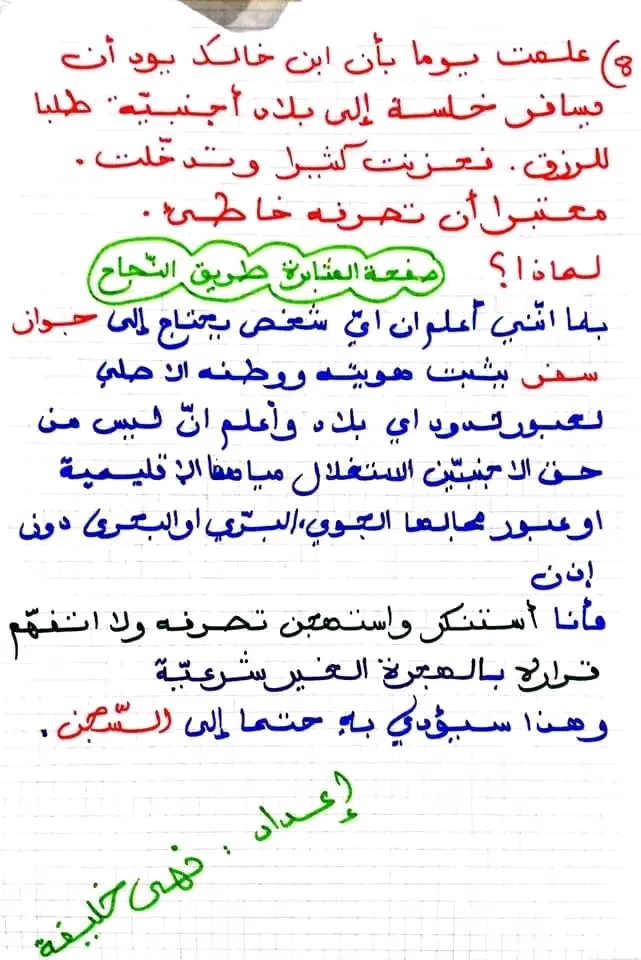 8) علمت يوما بأن ابن خالك يود أن
يسافر خلسة إلى بلاد أجنبيّة طلبا
للرزق. فحزنت كثيرا وتدخّلت.
معتبرا أن تصرفه خاطئ.
لماذا؟ صفحة المثابرة طريق النّجاح
بما انّني أعلم ان ايّ شخص يحتاج إلى جواز
سفر يثبت هويته ووطنه الاصلي
لعبور حدود اي بلاد وأعلم انّ ليس من
حق الاجنبيّين الاستغلال مياهها الاقليمية
او عبور مجالها الجوي، البرّي او البحري دون
إذن
فأنا أستنكر واستهجن تصرفه ولا اتفهّم
قراره بالهجرة الغير شرعيّة
وهذا سيؤدي به حتما إلى السّجن.
إعداد: نهى خليفة